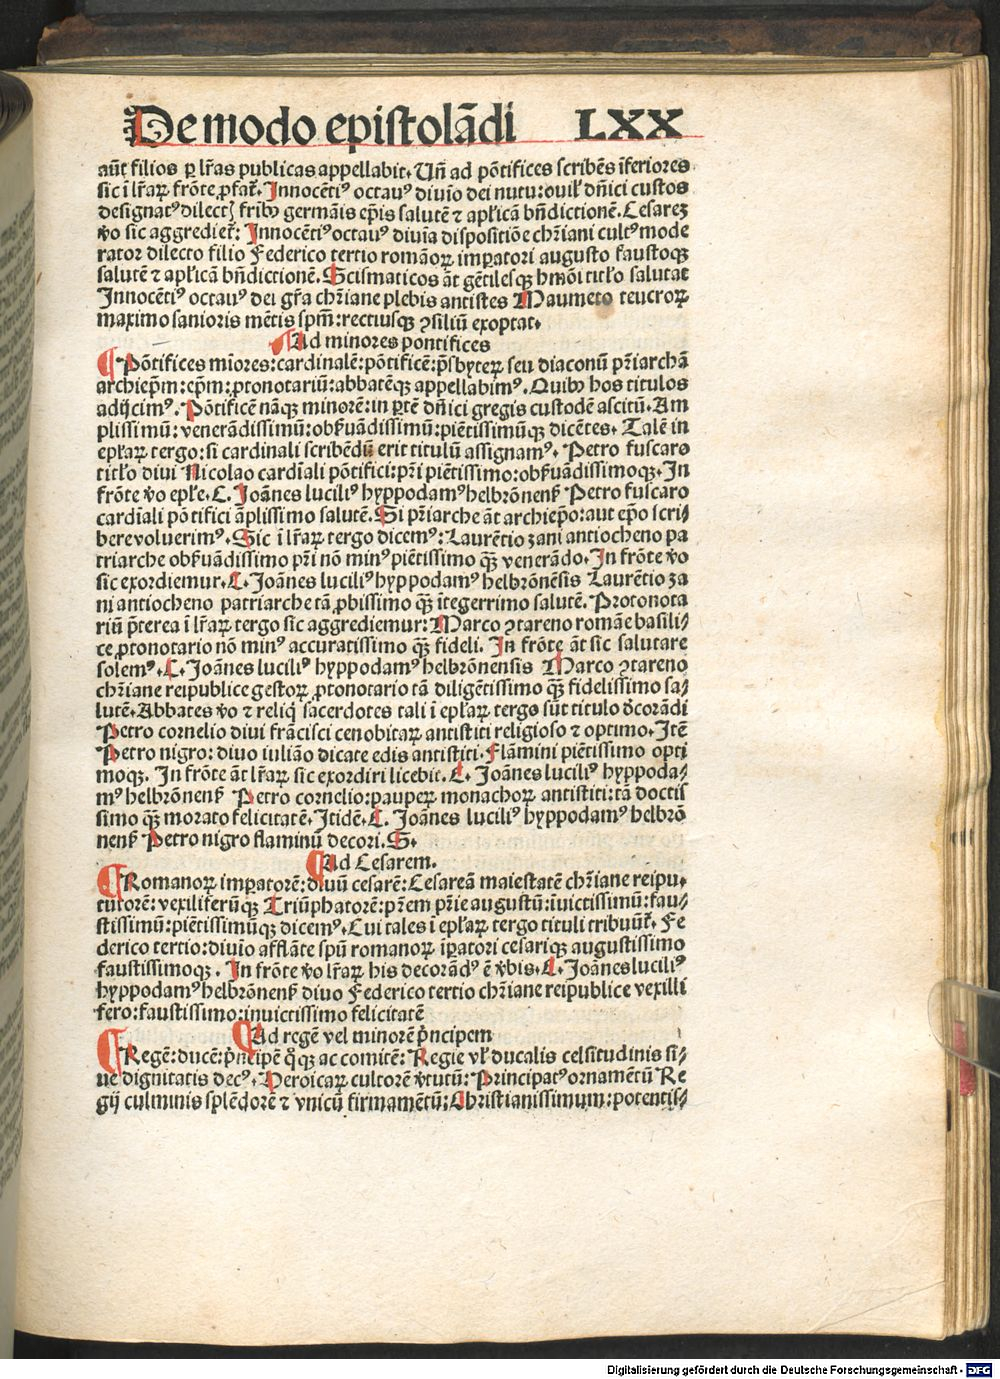 De modo epistolãdi LXX
aũt filios ꝑ lr̃as publicas appellabit. Vñ ad põtifices scribẽs ĩferiores
sic ĩ lr̃aꝝ frõte ꝓfat̃. Innocẽtiꝰ octauꝰ diuĩo dei nutu: ouil̃ dñici custos
designatꝰ dilectꝭ frib⁹ germãis ep̃is salutẽ ⁊ apl̃icã bñdictionẽ. Cesarez
ṽo sic aggrediet̃: Innocẽtiꝰ octauꝰ diuĩa dispositiõe chr̃iani cultꝰ mode
rator dilecto filio Federico tertio romãoꝝ imp̲atori augusto faustoqꝫ
salutẽ ⁊ apl̃icã bñdictionẽ. Scismaticos ãt gẽtilesqꝫ hmõi titl̃o salutat
Innocẽtiꝰ octauꝰ dei gr̃a chr̃iane plebis antistes Maumeto teucroꝝ
maximo sanioris mẽtis spm̃: rectiusqꝫ ꝯsiliũ exoptat.
Ad minores pontifices
¶ Põtifices mĩores: cardinalẽ: põtificẽ: p̃sbyteꝝ seu diaconũ pr̃iarchã
archiep̃m: ep̃m: ꝓtonotariũ: abbatẽqꝫ appellabimꝰ. Quib⁹ hos titulos
adijcimꝰ. Põtificẽ nãqꝫ minorẽ: in ꝑtẽ dñici gregis custodẽ ascitũ. Am
plissimũ: venerãdissimũ: obs̃uãdissimũ: piẽtissimũqꝫ dicẽtes. Talẽ in
epl̃aꝝ tergo: si cardinali scribẽdũ erit titulũ assignamꝰ. Petro fuscaro
titl̃o diui Nicolao cardĩali põtifici: pr̃i piẽtissimo: obs̃uãdissimoqꝫ. In
frõte ṽo epl̃e. C. Joãnes luciliꝰ hyppodamꝰ helbrõnens̃ Petro fuscaro
cardĩali põtifici ãplissimo salutẽ. Si pr̃iarche ãt archiep̃o: aut ep̃o scri⸗
bere voluerimꝰ. Sic ĩ lr̃aꝝ tergo dicemꝰ: Laurẽtio zani antiocheno pa
triarche obs̃uãdissimo pr̃i nõ minꝰ piẽtissimo qꝫ̃ venerãdo. In frõte ṽo
sic exordiemur. C. Joãnes luciliꝰ hyppodamꝰ helbrõnẽsis Laurẽtio za
ni antiocheno patriarche tã ꝓbissimo qꝫ̃ ĩtegerrimo salutẽ. Protonota
riũ p̃terea ĩ lr̃aꝝ tergo sic aggrediemur: Marco ꝯtareno romãe basili⸗
ce ꝓtonotario nõ minꝰ accuratissimo qꝫ̃ fideli. In frõte ãt sic salutare
solemꝰ. C. Joãnes luciliꝰ hyppodamꝰ helbrõnensis Marco ꝯtareno
chr̃iane reipublice gestoꝝ ꝓtonotario tã diligẽtissimo qꝫ̃ fidelissimo sa⸗
lutẽ. Abbates ṽo ⁊ reliq̃ sacerdotes tali ĩ epl̃aꝝ tergo sũt titulo d̃corãdi
Petro cornelio diui frãcisci cenobitaꝝ antistiti religioso ⁊ optimo. Itẽ
Petro nigro: diuo iuliãо dicate edis antistiti. Flãmini piẽtissimo opti
moqꝫ. In frõte ãt lr̃aꝝ sic exordiri licebit. C. Joãnes luciliꝰ hyppoda⸗
mꝰ helbrõnens̃ Petro cornelio: paupeꝝ monachoꝝ antistiti: tã doctis
simo qꝫ̃ morato felicitatẽ. Itidẽ. C. Joãnes luciliꝰ hyppodamꝰ helbrõ
nens̃ Petro nigro flaminũ decori. S.
¶ Ad Cesarem.
¶ Romanoꝝ imp̲atorẽ: diuũ cesarẽ: Cesareã maiestatẽ chr̃iane reipu.
tutorẽ: vexiliferũqꝫ Triũphatorẽ: pr̃em pr̃ie augustũ: ĩuictissimũ: fau⸗
stissimũ: piẽtissimũqꝫ dicemꝰ. Cui tales ĩ epl̃aꝝ tergo tituli tribuũt̃. Fe
derico tertio: diuĩo afflãte spũ romanoꝝ ĩp̲atori cesariqꝫ augustissimo
faustissimoqꝫ. In frõte ṽo lr̃aꝝ his decorãdꝰ ẽ ṽbis. C. Joãnes luciliꝰ
hyppodamꝰ helbrõnens̃ diuo Federico tertio chr̃iane reipublice vexilli
fero: faustissimo: inuictissimo felicitatẽ
¶ Ad regẽ vel minorẽ pͥncipem
¶ Regẽ: ducẽ: pͥncipẽ qͦqꝫ ac comitẽ: Regie vl̃ ducalis celsitudinis si⸗
ue dignitatis decꝰ. Heroicaꝝ cultorẽ ṽtutũ: Principatꝰ ornamẽtũ Re
gij culminis splẽdorẽ ⁊ vnicũ firmamẽtũ: Christianissimum: potentis⸗
Digitalisierung gefördert durch die Deutsche Forschungsgemeinschaft - DFG